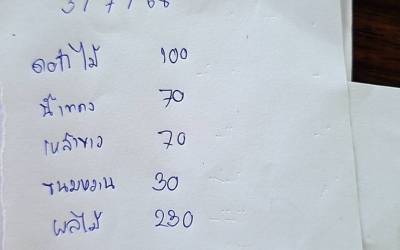 31/7/68
ดอกไม้ 100
น้ำแดง 70
เหล้าขาว 70
ขนมหวาน 30
ผลไม้ 230